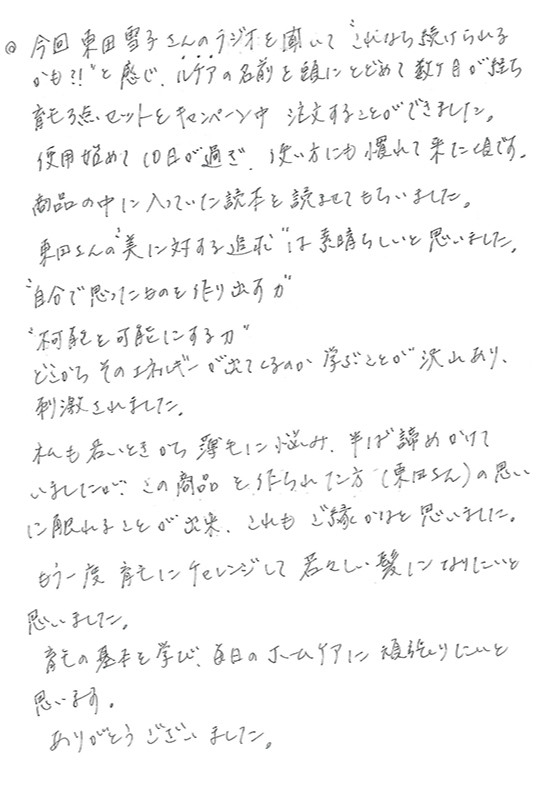 ◎ 今回 東田雪子さんのラジオを聞いて "これなら続けられる
かも?!"と感じ、ルケアの名前を頭にとどめて数ヶ月が経ち
育毛3点セットをキャンペーン中 注文することができました。
使用始めて10日が過ぎ、使い方にも慣れて来た頃です。
商品の中に入っていた読本を読ませてもらいました。
東田さんの"美に対する追求"は素晴らしいと思いました。
"自分で思ったものを作り出す力"
"不可能を可能にする力"
どこからそのエネルギーが出てくるのか 学ぶことが沢山あり、
刺激されました。
私も若いときから薄毛に悩み、半ば諦めかけて
いましたが、この商品を作られた方(東田さん)の思い
に触れることが出来、これもご縁かなと思いました。
もう一度 育毛にチャレンジして若々しい髪になりたいと
思いました。
育毛の基本を学び、毎日のホームケアに頑張りたいと
思います。
ありがとうございました。